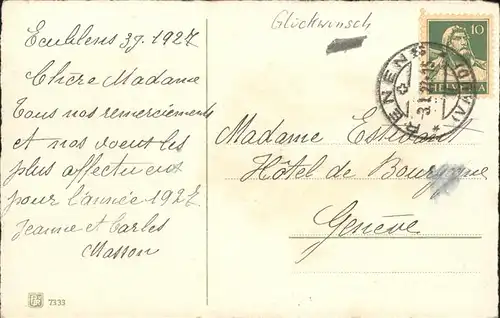 Glückwunsch
Ecublens 3 J. 1927
Chère Madame
Tous nos remerciements
et nos voeux les
plus affectueux
pour l'année 1927
Jeanne et Carles
Masson
Madame
Hôtel de Bourgogne
Genève
10
HELVETIA
RENENS (VAUD)
7333